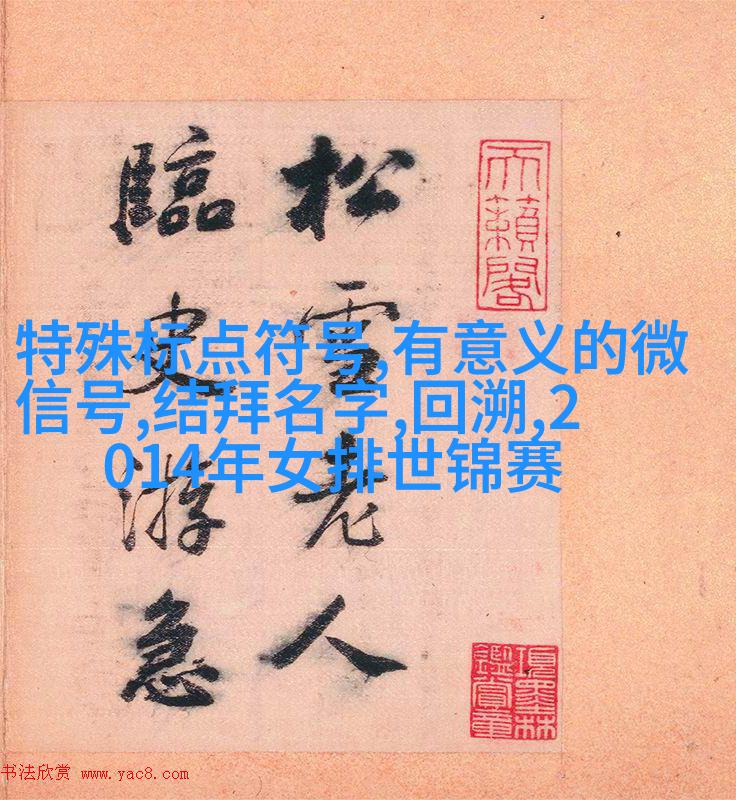 松雪老人
臨史游急
天籟閣
項墨林
鑑賞章
特殊标点符号,有意义的微
信号,结拜名字,回溯,2
014年女排世锦赛
书法欣赏 www.yac8.com